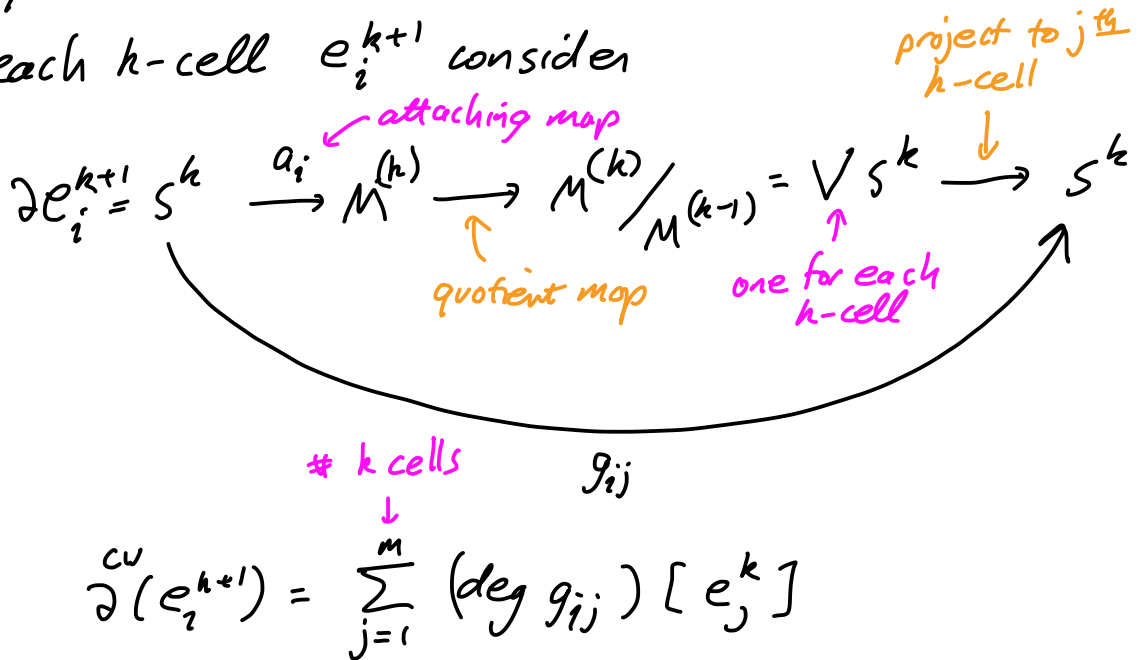 each k-cell e_i^{k+1} consider
project to j^{th} k-cell
attaching map
∂e_i^{k+1} = S^k \xrightarrow{a_i} M^{(k)} → M^{(k)}/M^{(k-1)} = ∨ S^k → S^k
quotient map
one for each k-cell
g_{ij}
# k cells
∂^{CW}(e_i^{k+1}) = \sum_{j=1}^{m} (deg g_{ij}) [e_j^k]